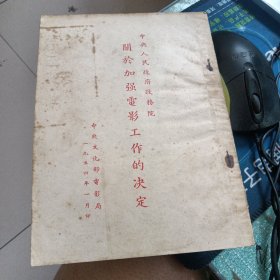 中央人民政府政務院
關於加强電影工作的决定
中央文化部電影局
一九五四年一月印